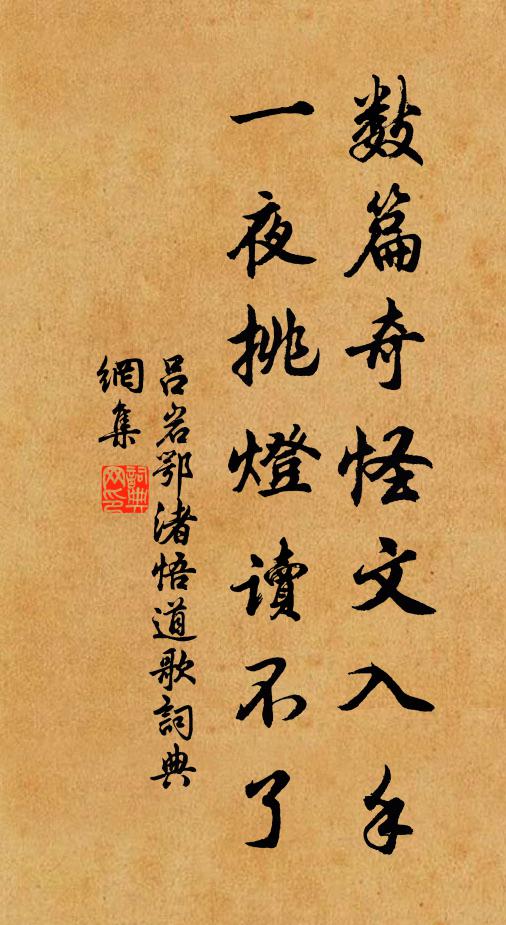 數篇奇怪文入手
一夜挑燈讀不了
呂岩鄂渚悟道歌詞典
網集
詞典
网印